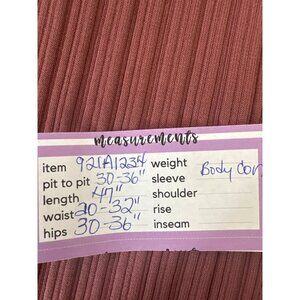 measurements
item 921A1234 weight
pit to pit 30-36" sleeve Body Con
length 47" shoulder
waist 20-32" rise
hips 30-36" inseam